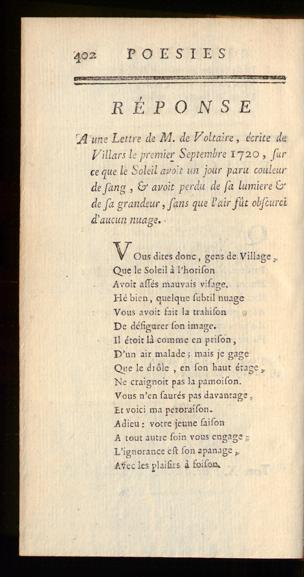 402 POESIES
RÉPONSE
A une Lettre de M. de Voltaire, écrite de
Villars le premier Septembre 1720, sur
ce que le Soleil avoit un jour paru couleur
de sang, & avoit perdu de sa lumiere &
de sa grandeur, sans que l'air fût obscurci
d'aucun nuage.
VOus dites donc, gens de Village,
Que le Soleil à l'horison
Avoit assés mauvais visage.
Hé bien, quelque subtil nuage
Vous avoit fait la trahison
De défigurer son image.
Il étoit là comme en prison,
D'un air malade; mais je gage
Que le drôle, en son haut étage,
Ne craignoit pas la pamoison.
Vous n'en saurés pas davantage,
Et voici ma peroraison.
Adieu: votre jeune saison
A tout autre soin vous engage;
L'ignorance est son apanage,
Avec les plaisirs à foison.